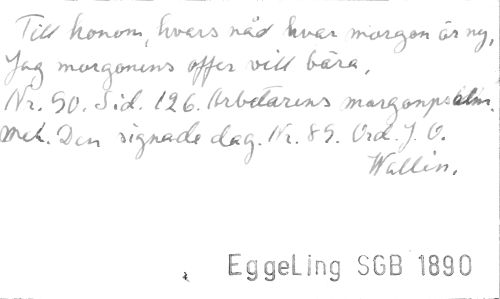 Till honom, hvars nåd hvar morgon är ny,
Jag morgonens offer vill bära,
Nr. 90. Sid. 126. Arbetarens morgonpsalm.
Mel. Den signade dag. Nr. 89. Ord. J. O.
Wallin.
EggeLing SGB 1890